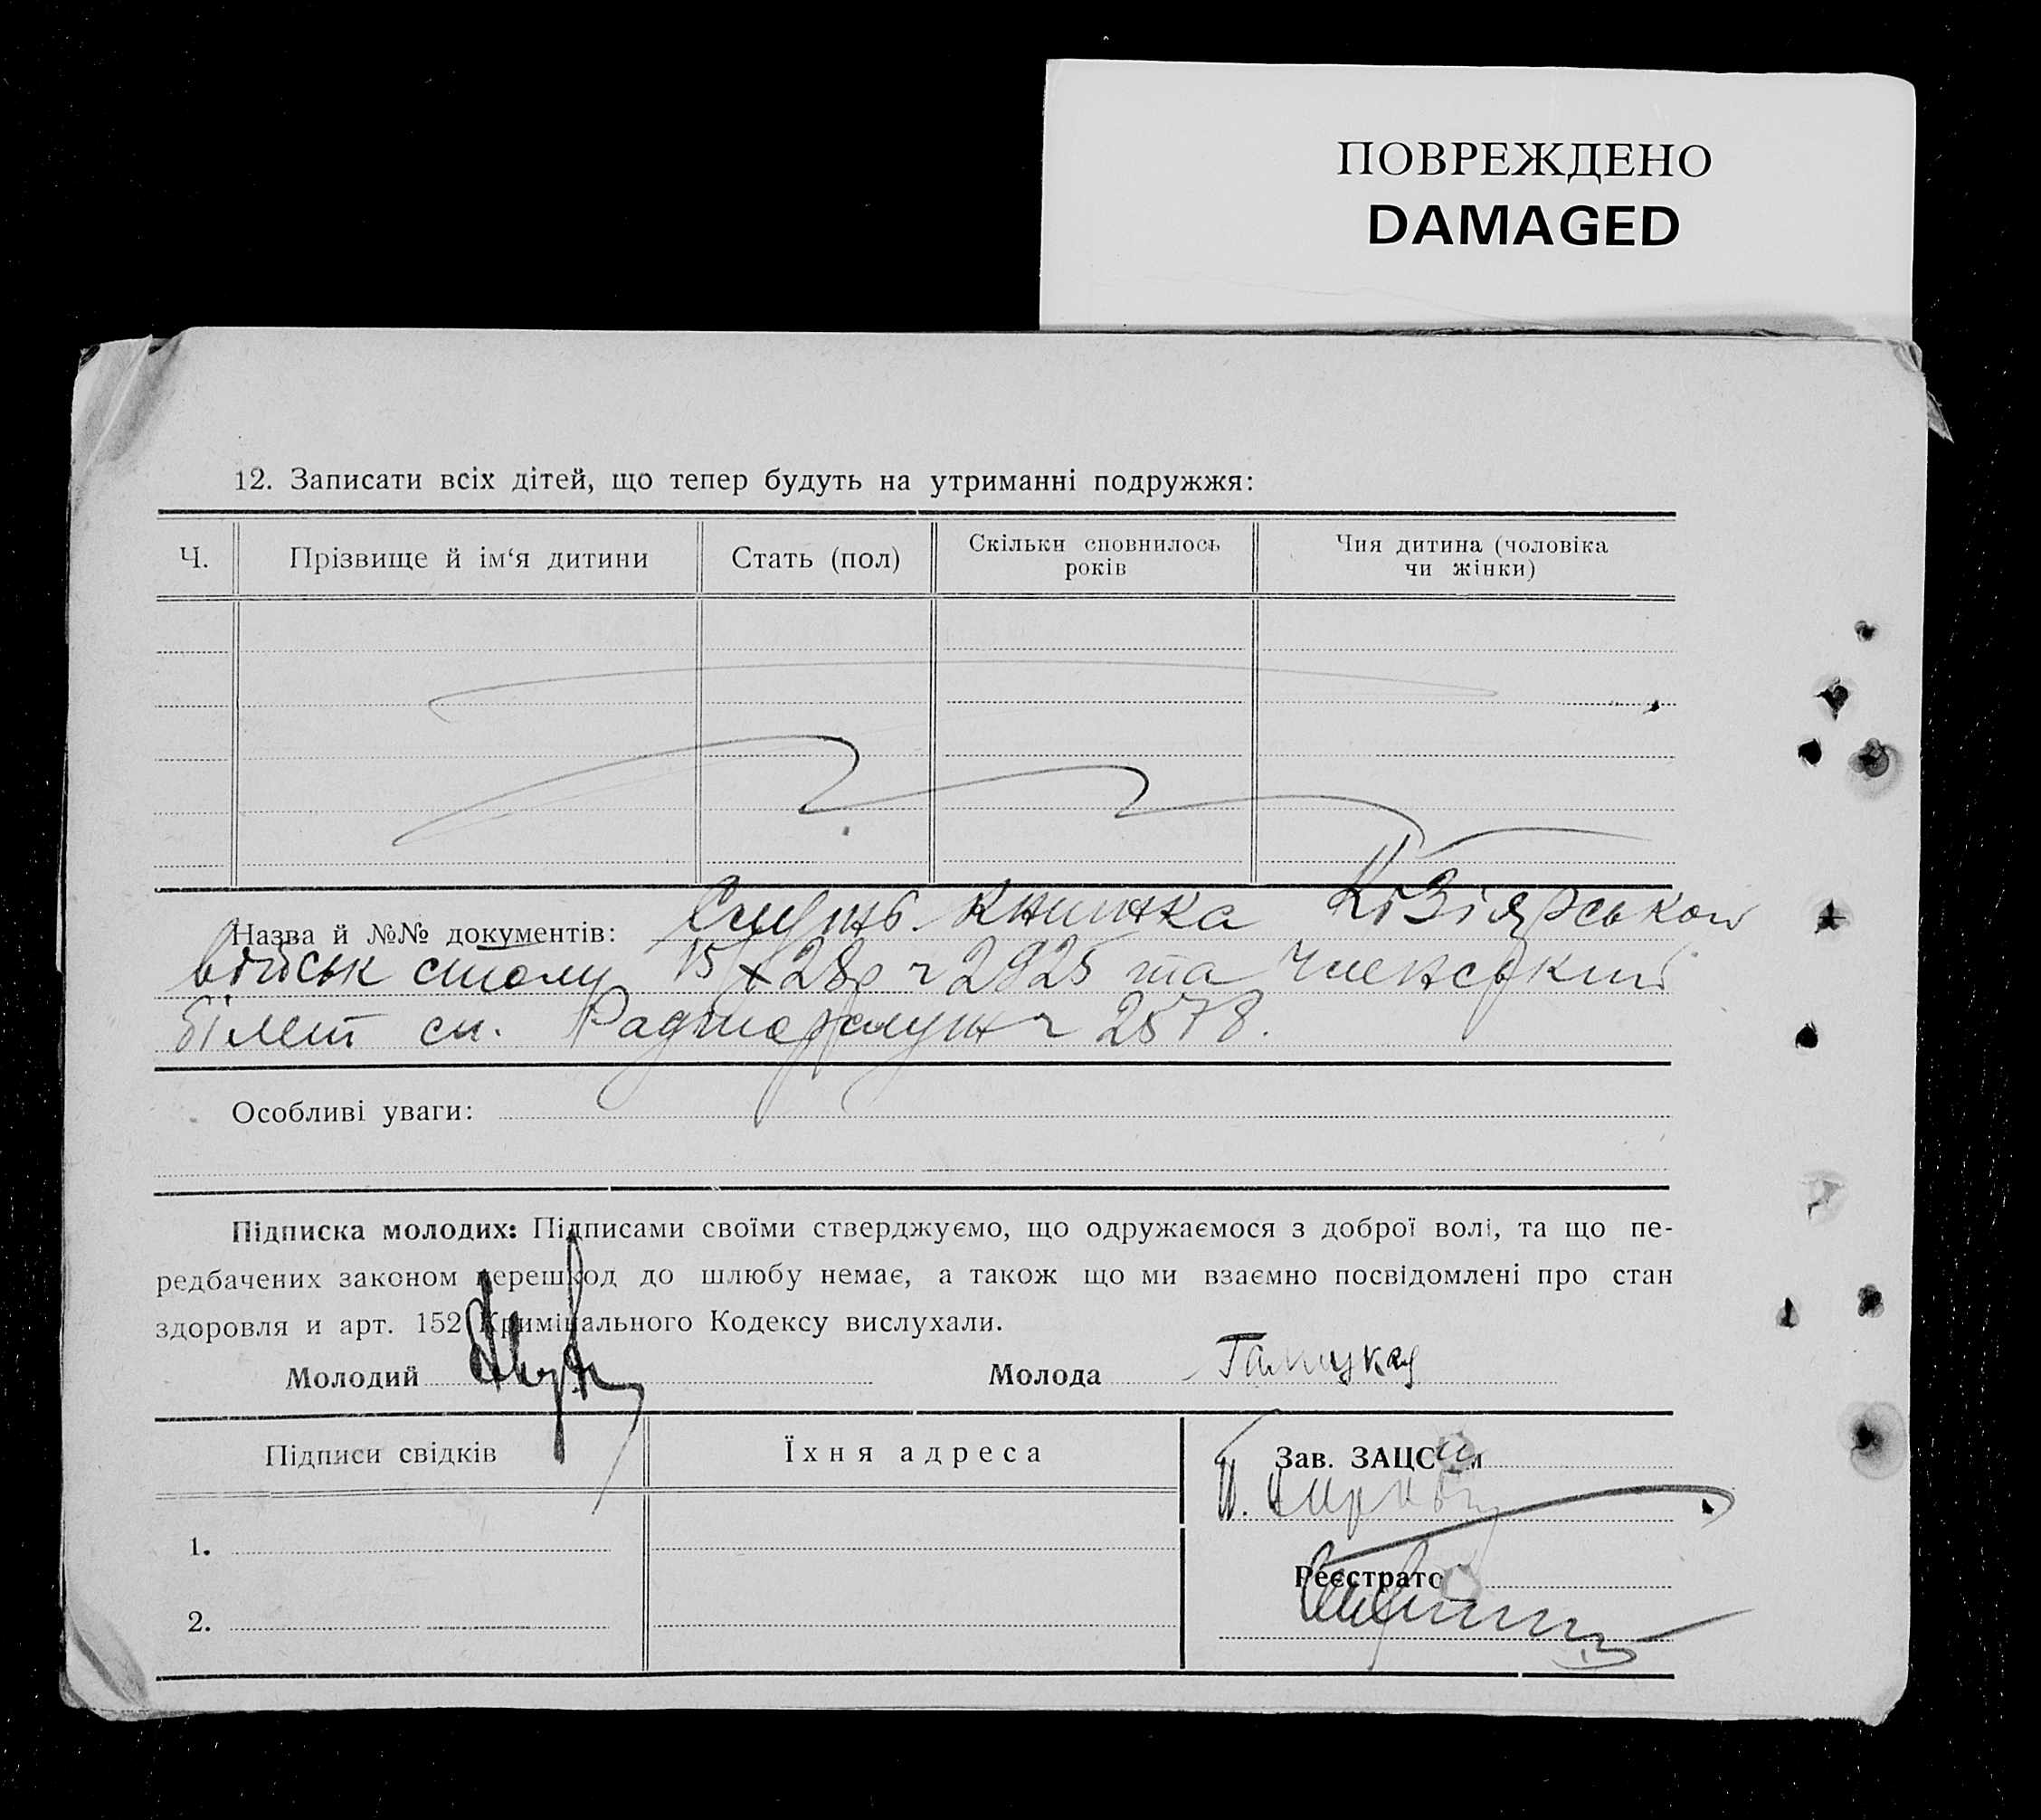 ПОВРЕЖДЕНО
DAMAGED
12. Записати всіх дітей, що тепер будуть на утриманні подружжя:
Ч.
Прізвище й ім‘я дитини
Стать (пол)
Скільки сповнилось
років
Чия дитина (чоловіка
чи жінки)
Назва й №№ документів: книжка
військ столу 15/X 28р ч 2925 та Членський
білет сп. 2578.
Особливі уваги:
Підписка молодих: Підписами своїми стверджуємо, що одружаємося з доброї волі, та що пе-
редбачених законом перешкод до шлюбу немає, а також що ми взаємно посвідомлені про стан
здоровля и арт. 152 Кримінального Кодексу вислухали.
Молодий
Молода
Підписи свідків
Їхня адреса
Зав. ЗАЦС'ом
1.
Реєстратор
2.